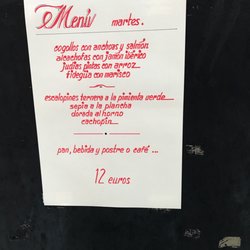 Menú martes.
cogollos con anchoas y salmón
alcachofas con jamón ibérico
judías pintas con arroz...
fideguá con marisco
escalopines ternera a la pimienta verde...
sepia a la plancha
dorada al horno
cachopín...
pan, bebida y postre o café ...
12 euros